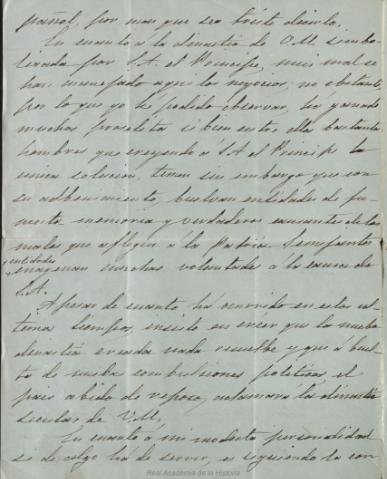 pañol, por mas que sea triste decirlo.
En cuanto á la dinastia de V.M. simbo-
lizada por S.A. el Principe, muy mal se
han manejado aqui los negocios, no obstante,
por lo que yo he podido observar, ha ganado
muchos proselitos si bien entre ellos bastantes
hombres que creyendo á S.A. el Principe la
unica solucion, temen sin embargo que con
su advenimiento, vuelvan entidades de fu-
nesta memoria y verdaderos causantes de los
males que afligen á la Patria. Semejantes
entidades
enagenan muchas voluntades á la causa de
S.A.
Apesar de cuanto há ocurrido en estos ul-
timos tiempos, insisto en creer que la nueva
dinastia creada nada resuelve y que á vuel-
ta de nuevas combulsiones politicas, el
pais abido de reposo, aclamará la dinastia
secular de V.M.
En cuanto á mi modesta personalidad
si de algo há de servir, es siguiendo la con
Real Academia de la Historia